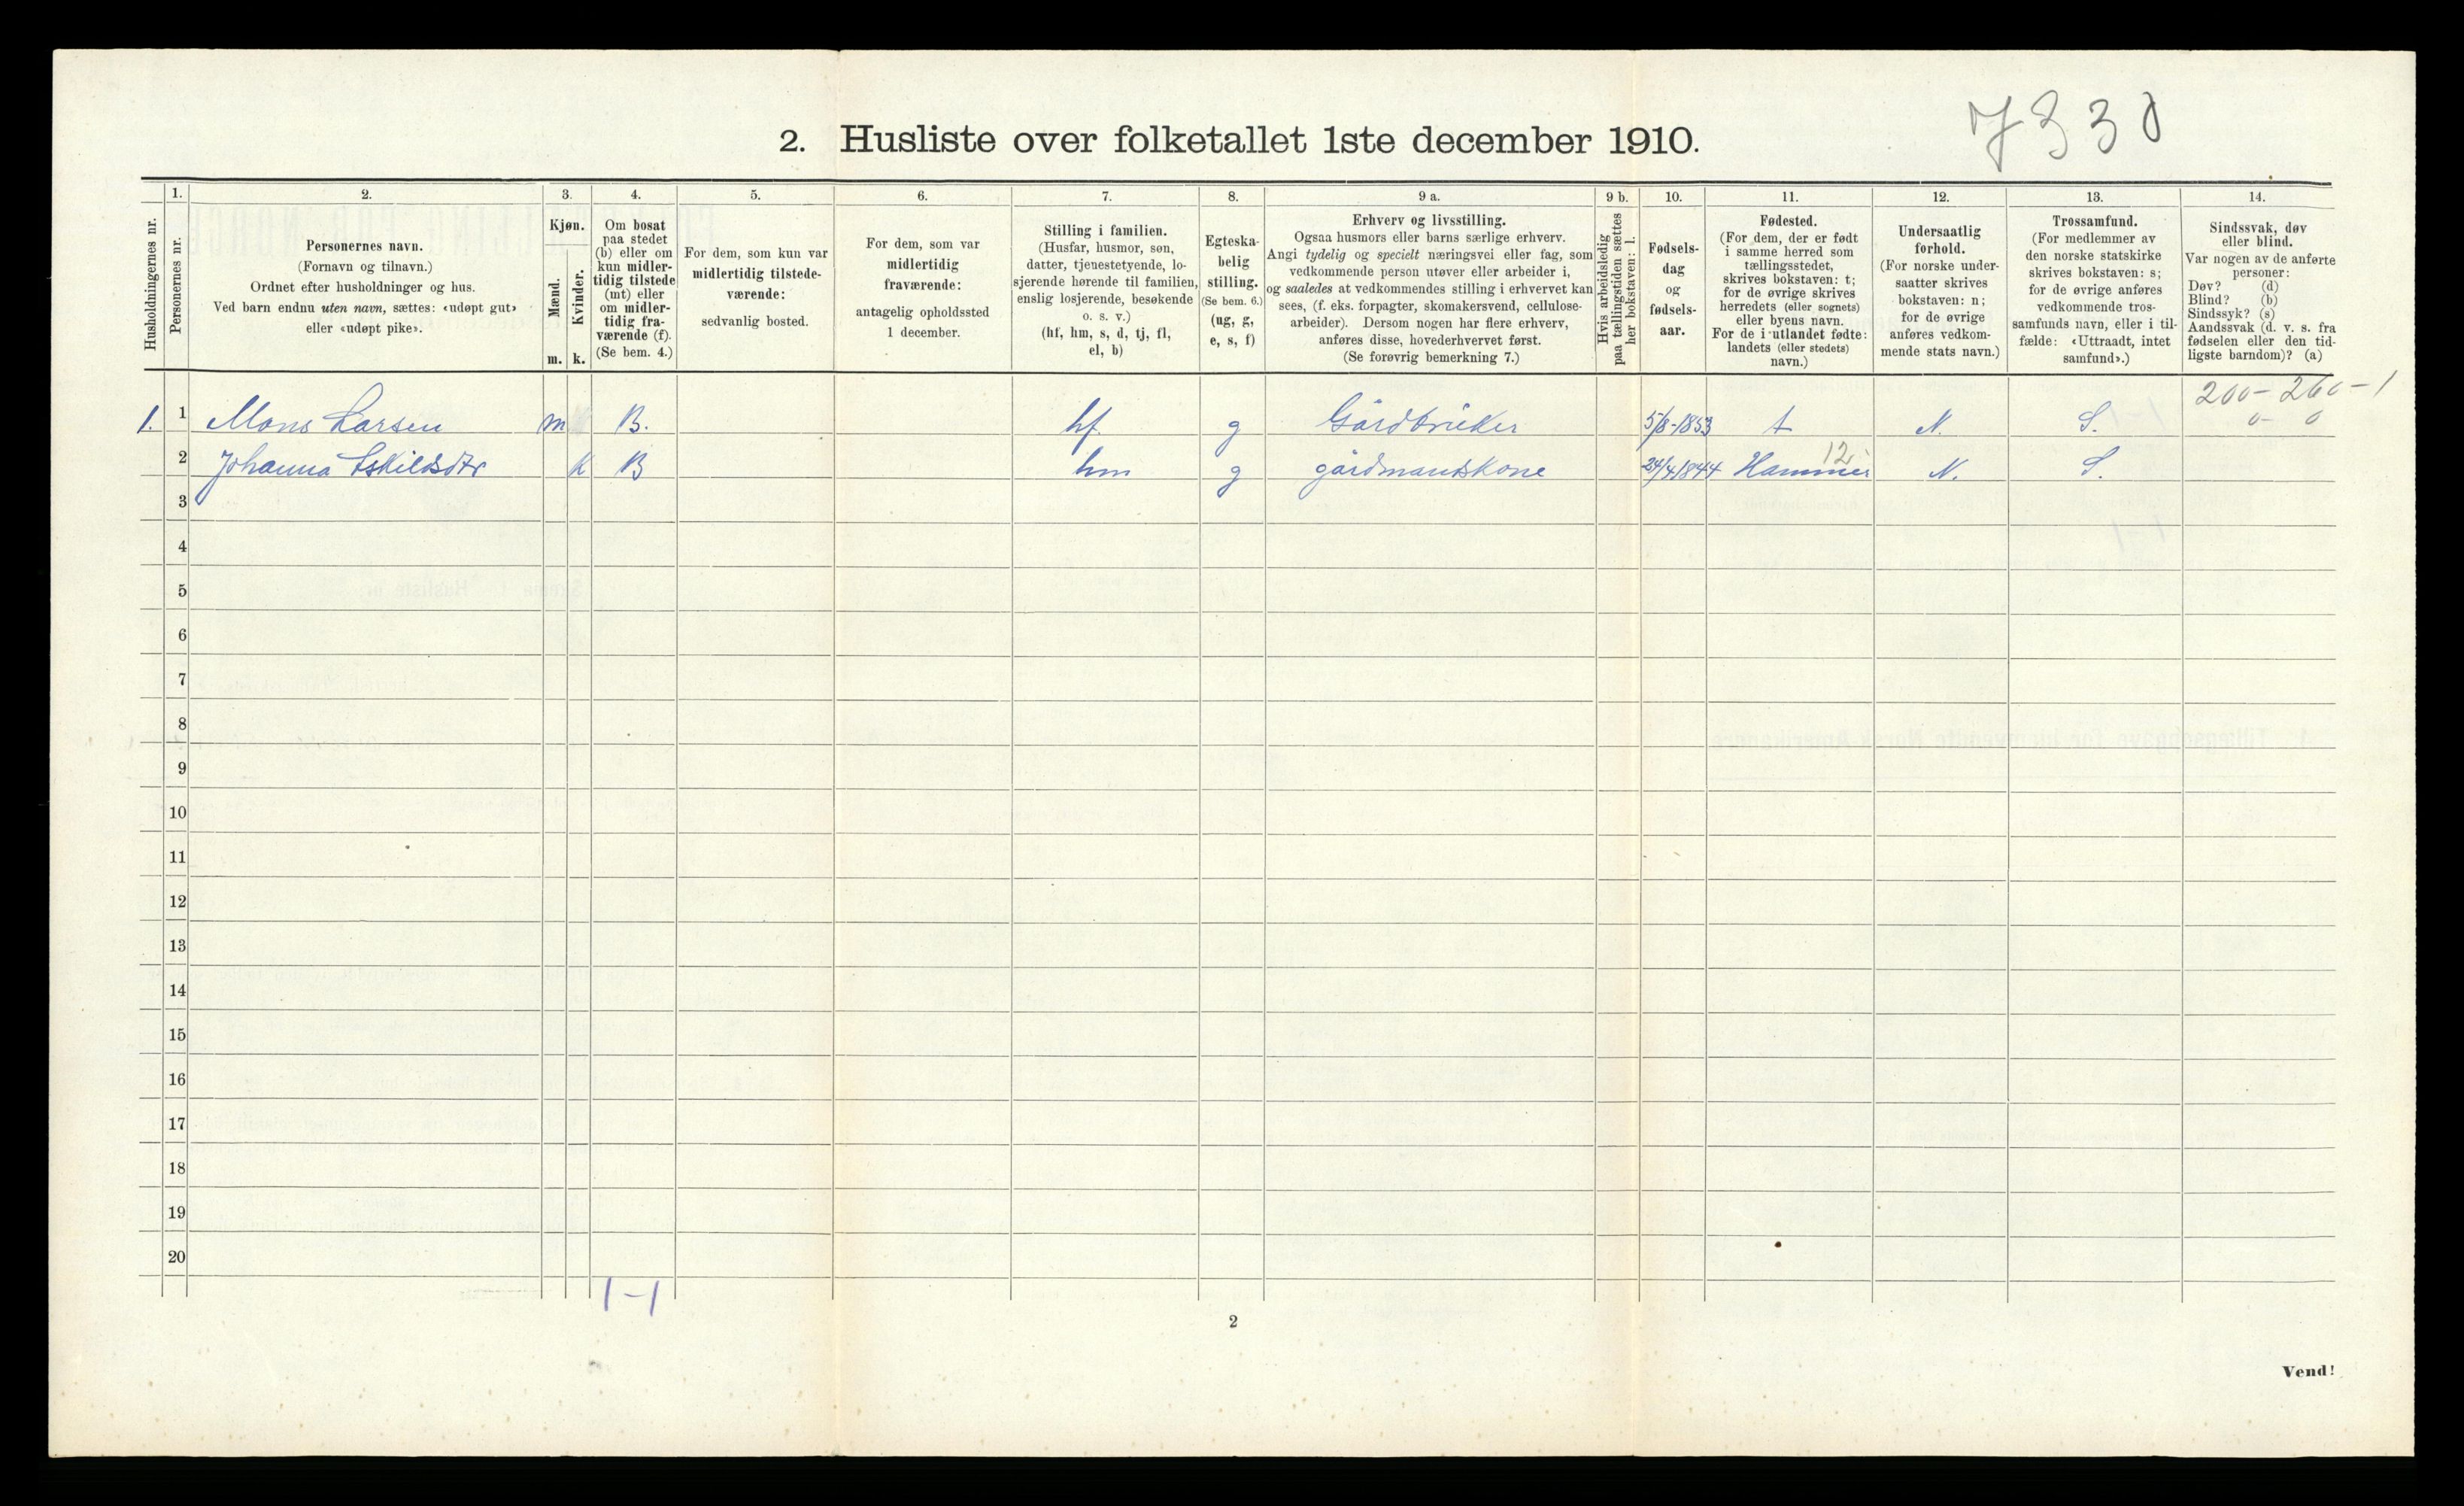 7330
2. Husliste over folketallet 1ste december 1910.
Husholdningernes nr.
1.
Personernes nr.
2.
Personernes navn.
(Fornavn og tilnavn.)
Ordnet efter husholdninger og hus.
Ved barn endnu uten navn, sættes: «udøpt gut»
eller «udøpt pike».
3.
Kjøn.
Mænd.
m.
Kvinder.
k.
4.
Om bosat
paa stedet
(b) eller om
kun midler-
tidig tilstede
(mt) eller
om midler-
tidig fra-
værende (f).
(Se bem. 4.)
5.
For dem, som kun var
midlertidig tilstede-
værende:
sedvanlig bosted.
6.
For dem, som var
midlertidig
fraværende:
antagelig opholdssted
1 december.
7.
Stilling i familien.
(Husfar, husmor, søn,
datter, tjenestetyende, lo-
sjerende hørende til familien,
enslig losjerende, besøkende
o. s. v.)
(hf, hm, s, d, tj, fl,
el, b)
8.
Egteska-
belig
stilling.
(Se bem. 6.)
(ug, g,
e, s, f)
9 a.
Erhverv og livsstilling.
Ogsaa husmors eller barns særlige erhverv.
Angi tydelig og specielt næringsvei eller fag, som
vedkommende person utøver eller arbeider i,
og saaledes at vedkommendes stilling i erhvervet kan
sees, (f. eks. forpagter, skomakersvend, cellulose-
arbeider). Dersom nogen har flere erhverv,
anføres disse, hovederhvervet først.
(Se forøvrig bemerkning 7.)
9 b.
Hvis arbeidsledig
paa tællingstiden sættes
her bokstaven: l.
10.
Fødsels-
dag
og
fødsels-
aar.
11.
Fødested.
(For dem, der er født
i samme herred som
tællingsstedet,
skrives bokstaven: t;
for de øvrige skrives
herredets (eller sognets)
eller byens navn.
For de i utlandet fødte:
landets (eller stedets)
navn.)
12.
Undersaatlig
forhold.
(For norske under-
saatter skrives
bokstaven: n;
for de øvrige
anføres vedkom-
mende stats navn.)
13.
Trossamfund.
(For medlemmer av
den norske statskirke
skrives bokstaven: s;
for de øvrige anføres
vedkommende tros-
samfunds navn, eller i til-
fælde: «Uttraadt, intet
samfund».)
14.
Sindssvak, døv
eller blind.
Var nogen av de anførte
personer:
Døv? (d)
Blind? (b)
Sindssyk? (s)
Aandssvak (d. v. s. fra
fødselen eller den tid-
ligste barndom)? (a)
200-260-1
0- 0
1. 1 Mons Larsen m B. hf. g Gårdbruker 5/8-1853 t N. S.
12
2 Johanna Eskildsdtr k B hm g gårdmandskone 24/4 1844 Hammer N. S.
3
4
5
6
7
8
9
10
11
12
13
14
15
16
17
18
19
20
1-1
2
Vend!